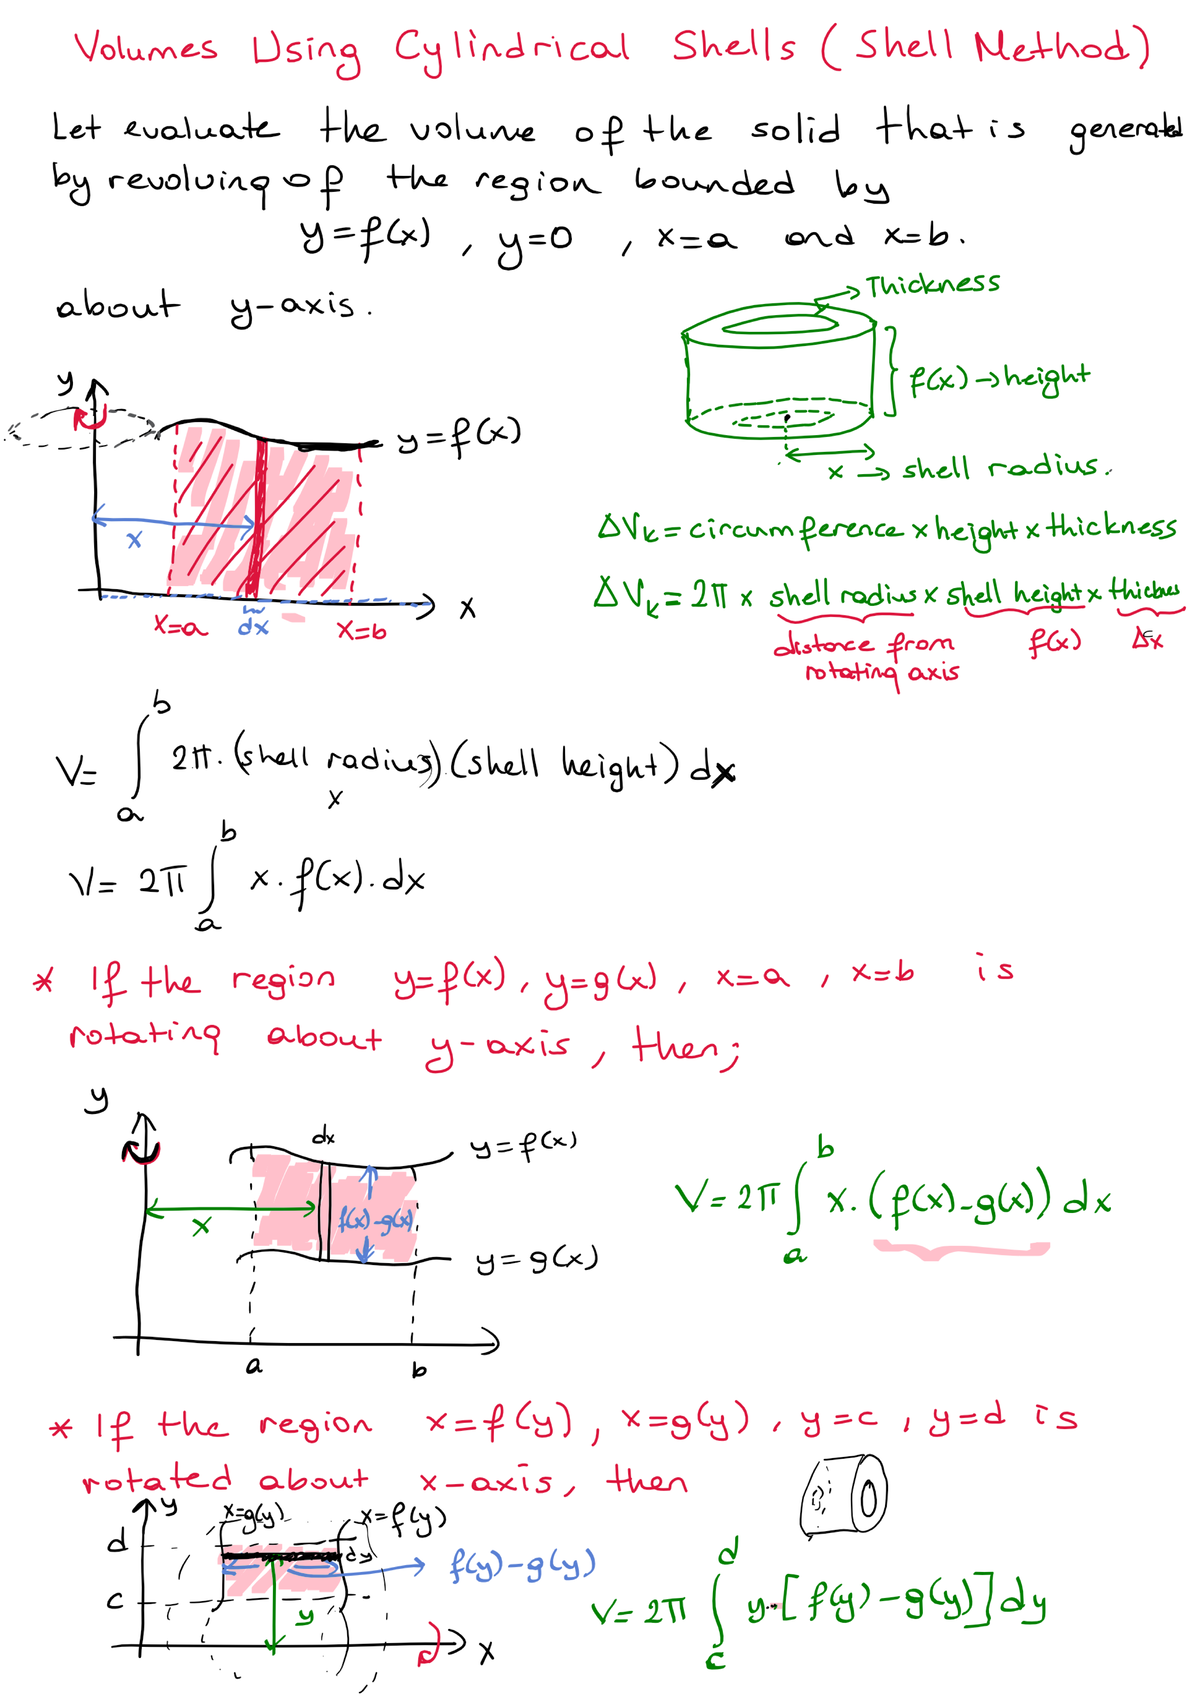 Volumes Using Cylindrical Shells (Shell Method)
Let evaluate the volume of the solid that is generated
by revolving of the region bounded by
y=f(x) , y=0 , x=a and x=b.
about y-axis.
Thickness
f(x) → height
x → shell radius.
y
y=f(x)
x
x
x=a dx x=b
ΔVk = circumference x height x thickness
ΔVk = 2π x shell radius x shell height x thicknes
distance from f(x) Δx
rotating axis
V= ∫ₐᵇ 2π.(shell radius).(shell height) dx
x
V= 2π ∫ₐᵇ x.f(x).dx
* If the region y=f(x), y=g(x), x=a, x=b is
rotating about y-axis, then;
y
dx
y=f(x)
x
f(x)-g(x)
y=g(x)
a b
V= 2π ∫ₐᵇ x.(f(x)-g(x)) dx
* If the region x=f(y), x=g(y), y=c, y=d is
rotated about x-axis, then
y
x=g(y) x=f(y)
d
dy
f(y)-g(y)
c
y
x
V= 2π ∫_c^d y.[f(y)-g(y)]dy